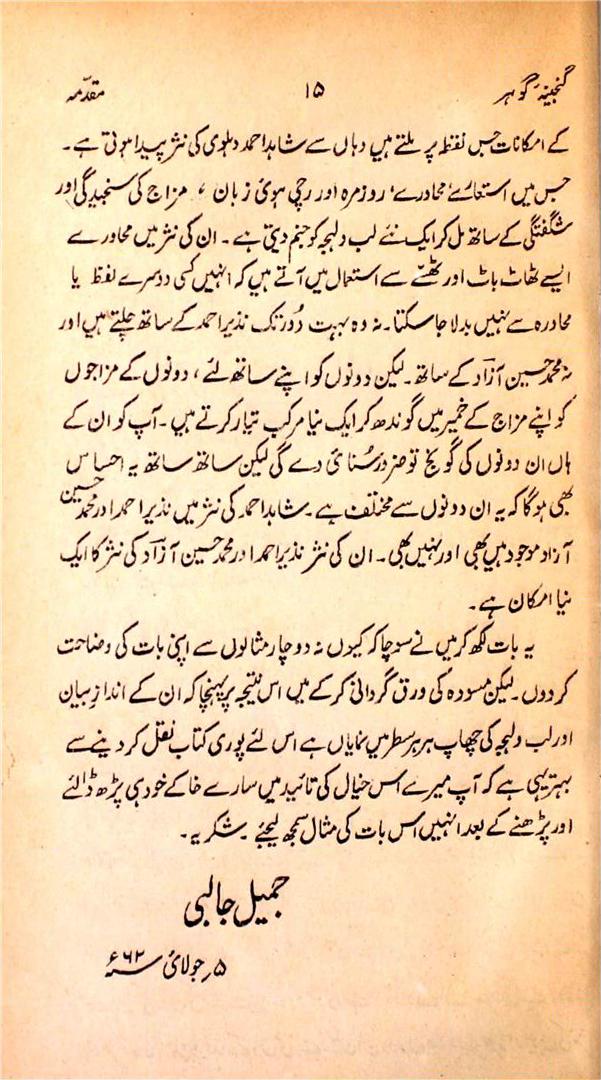 گنجینۂ گوہر ۱۵ مقدّمہ
کے امکانات جس نقطہ پر ملتے ہیں وہاں سے شاہد احمد دہلوی کی نثر پیدا ہوتی ہے۔
جس میں استعارے، محاورے، روزمرہ اور رچی ہوئی زبان، مزاج کی سنجیدگی اور
شگفتگی کے ساتھ مل کر ایک نئے لب و لہجہ کو جنم دیتی ہے۔ ان کی نثر میں محاورے
ایسے ٹھاٹ باٹ اور ٹھسّے سے استعمال میں آتے ہیں کہ انہیں کسی دوسرے لفظ یا
محاورہ سے نہیں بدلا جاسکتا۔ نہ وہ بہت دُور تک نذیر احمد کے ساتھ چلتے ہیں اور
نہ محمد حسین آزاد کے ساتھ۔ لیکن دونوں کو اپنے ساتھ لئے، دونوں کے مزاجوں
کو اپنے مزاج کے خمیر میں گوندھ کر ایک نیا مرکب تیار کرتے ہیں۔ آپ کو ان کے
ہاں ان دونوں کی گونج تو ضرور سُنائی دے گی لیکن ساتھ ساتھ یہ احساس
بھی ہوگا کہ یہ ان دونوں سے مختلف ہے۔ شاہد احمد کی نثر میں نذیر احمد اور محمد حسین
آزاد موجود ہیں بھی اور نہیں بھی۔ ان کی نثر نذیر احمد اور محمد حسین آزاد کی نثر کا ایک
نیا امکان ہے۔
یہ بات لکھ کر میں نے سوچا کہ کیوں نہ دو چار مثالوں سے اپنی بات کی وضاحت
کردوں۔ لیکن مسودہ کی ورق گردانی کرکے میں اس نتیجہ پر پہنچا کہ ان کے اندازِ بیان
اور لب و لہجہ کی چھاپ ہر ہر سطر میں نمایاں ہے اس لئے پوری کتاب نقل کر دینے سے
بہتر یہی ہے کہ آپ میرے اس خیال کی تائید میں سارے خاکے خود ہی پڑھ ڈالئے
اور پڑھنے کے بعد انہیں اس بات کی مثال سمجھ لیجئے۔ شکریہ۔
جمیل جالبی
۵؍ جولائی سنہ ۶۲ء